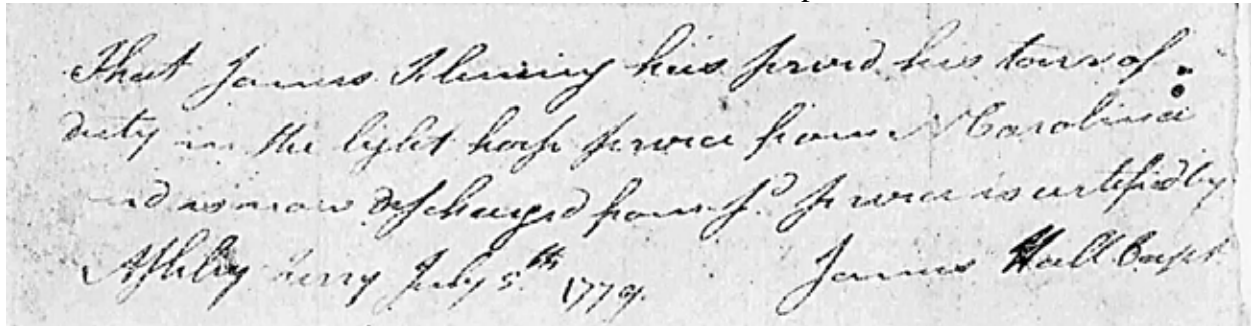 That James Fleming has served his tour of
duty in the light horse service from N Carolina
and is now discharged from sd. service is certified by
Ashley Ferry July 5th 1779. James Hall Capt